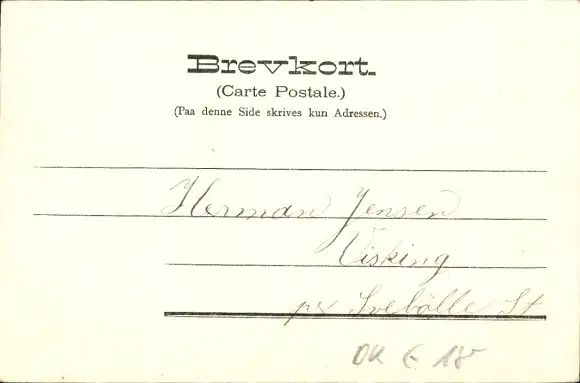 Brevkort.
(Carte Postale.)
(Paa denne Side skrives kun Adressen.)
Herman Jensen
Visking
pr Svebölle St
DK E 18